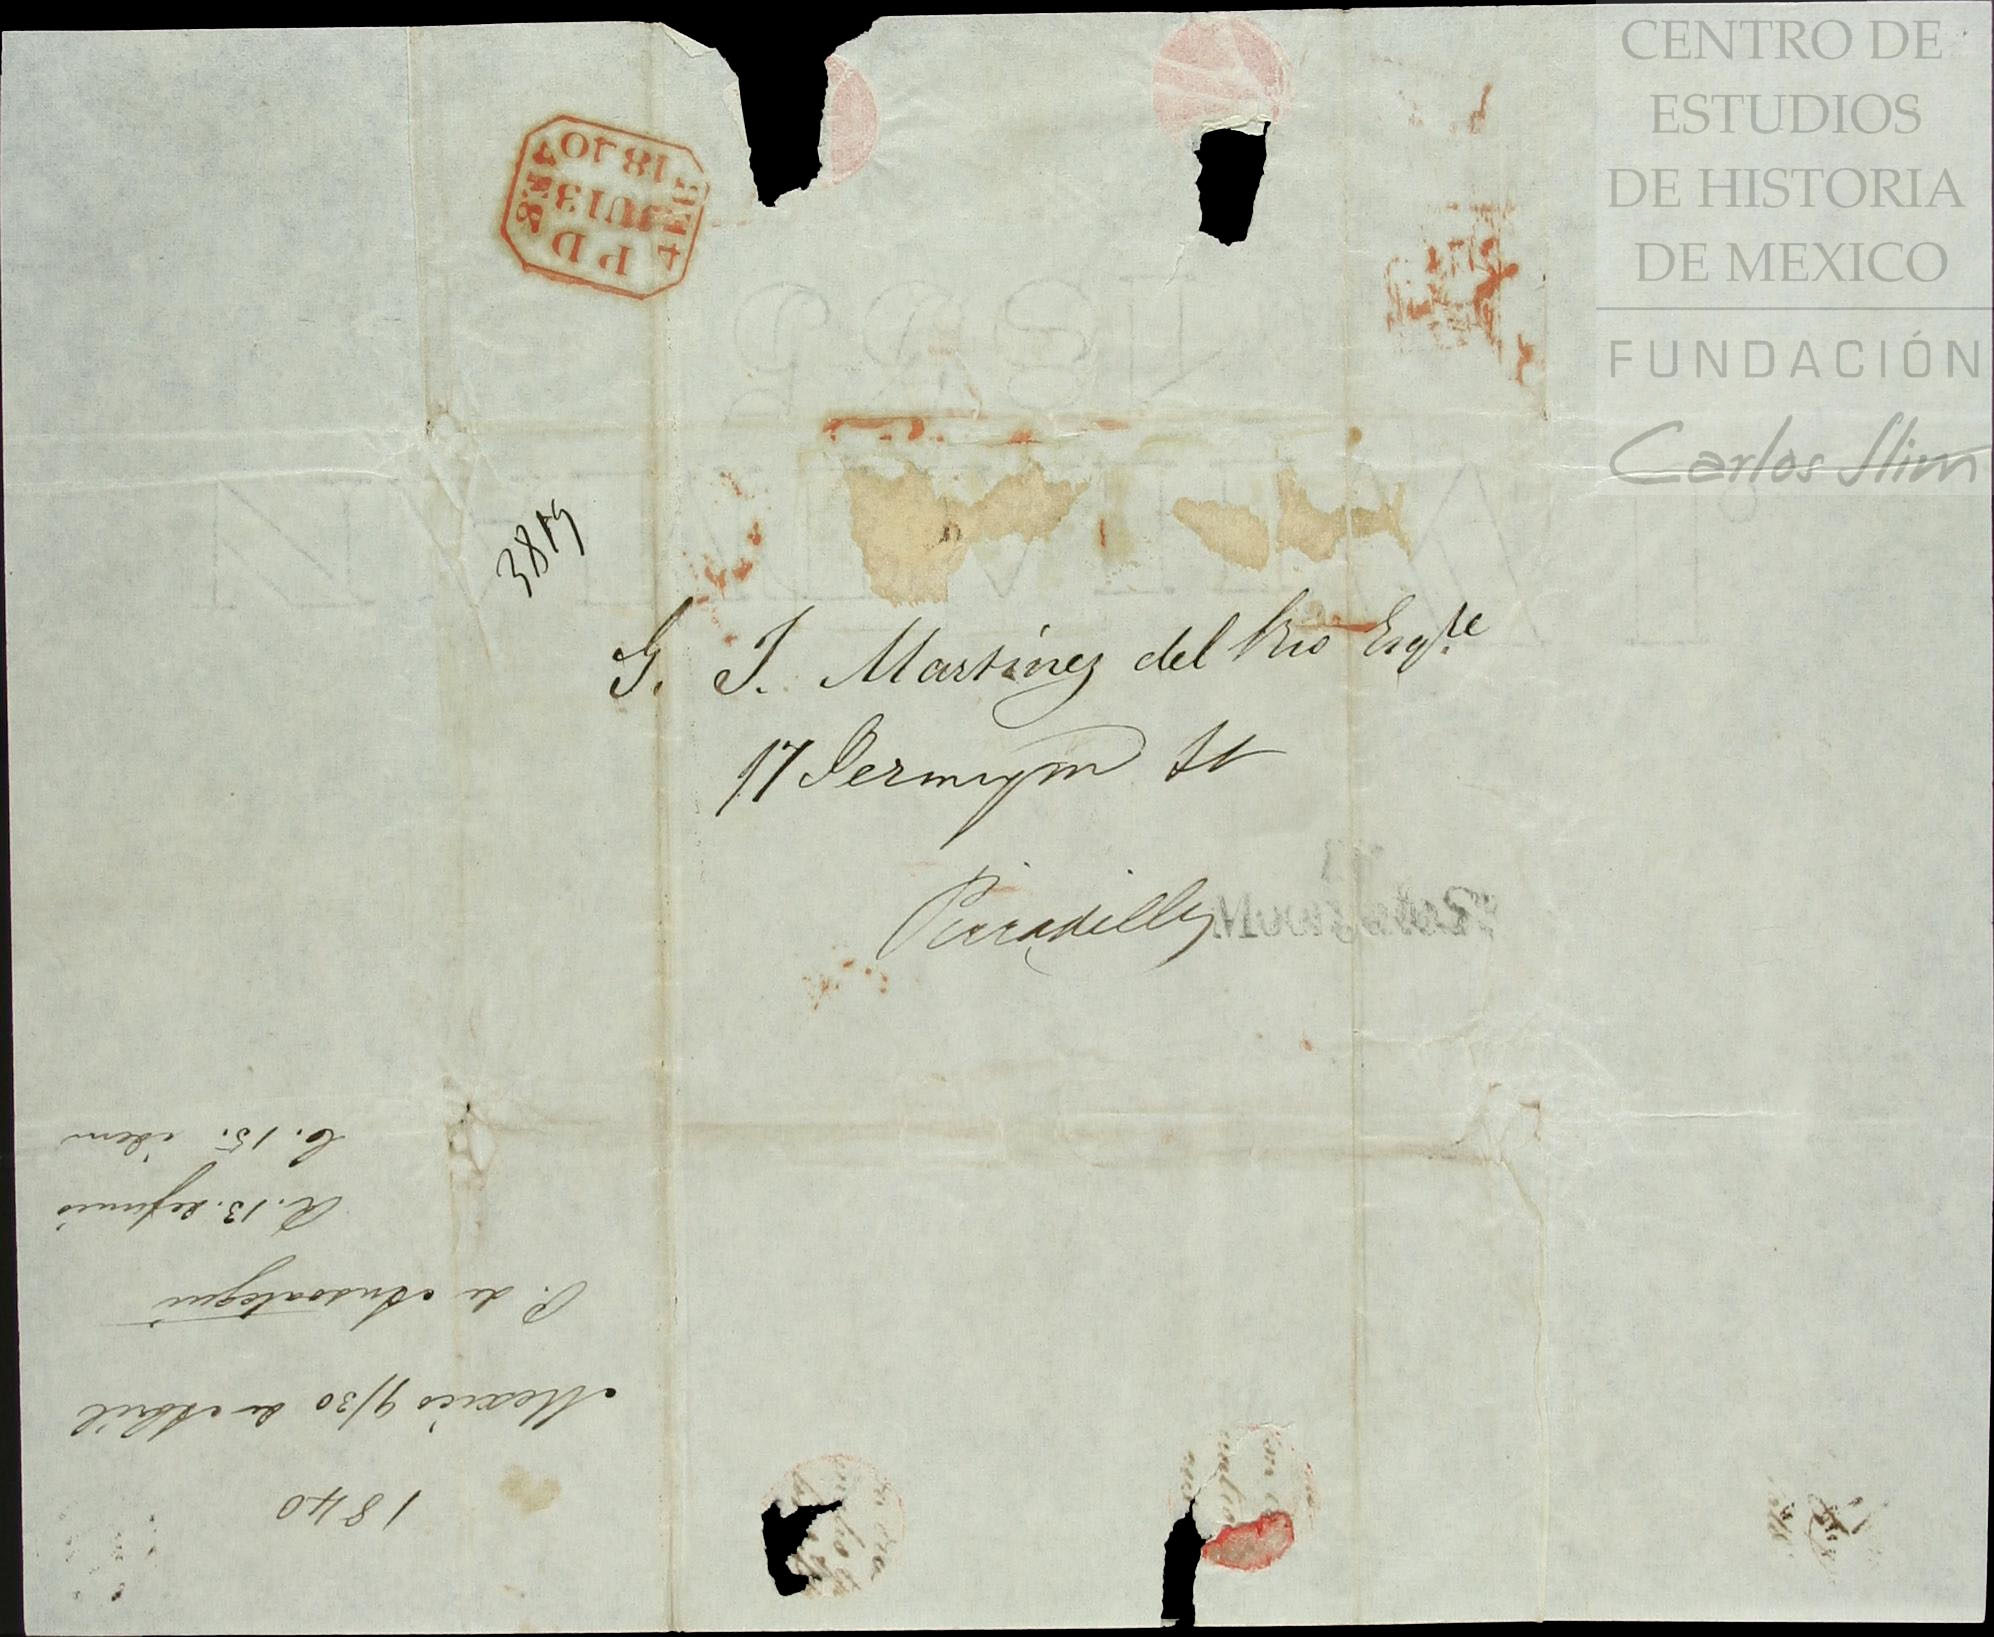 CENTRO DE
ESTUDIOS
DE HISTORIA
DE MEXICO
FUNDACIÓN
Carlos Slim
P D
JU 13
1840
3819
G. J. Martinez del Rio Esqre
17 Jermyn St
Piccadilly
1840
Mexico 9/30 de Abril
P. de Ansoategui
R. 13. de Junio
C. 15. idem